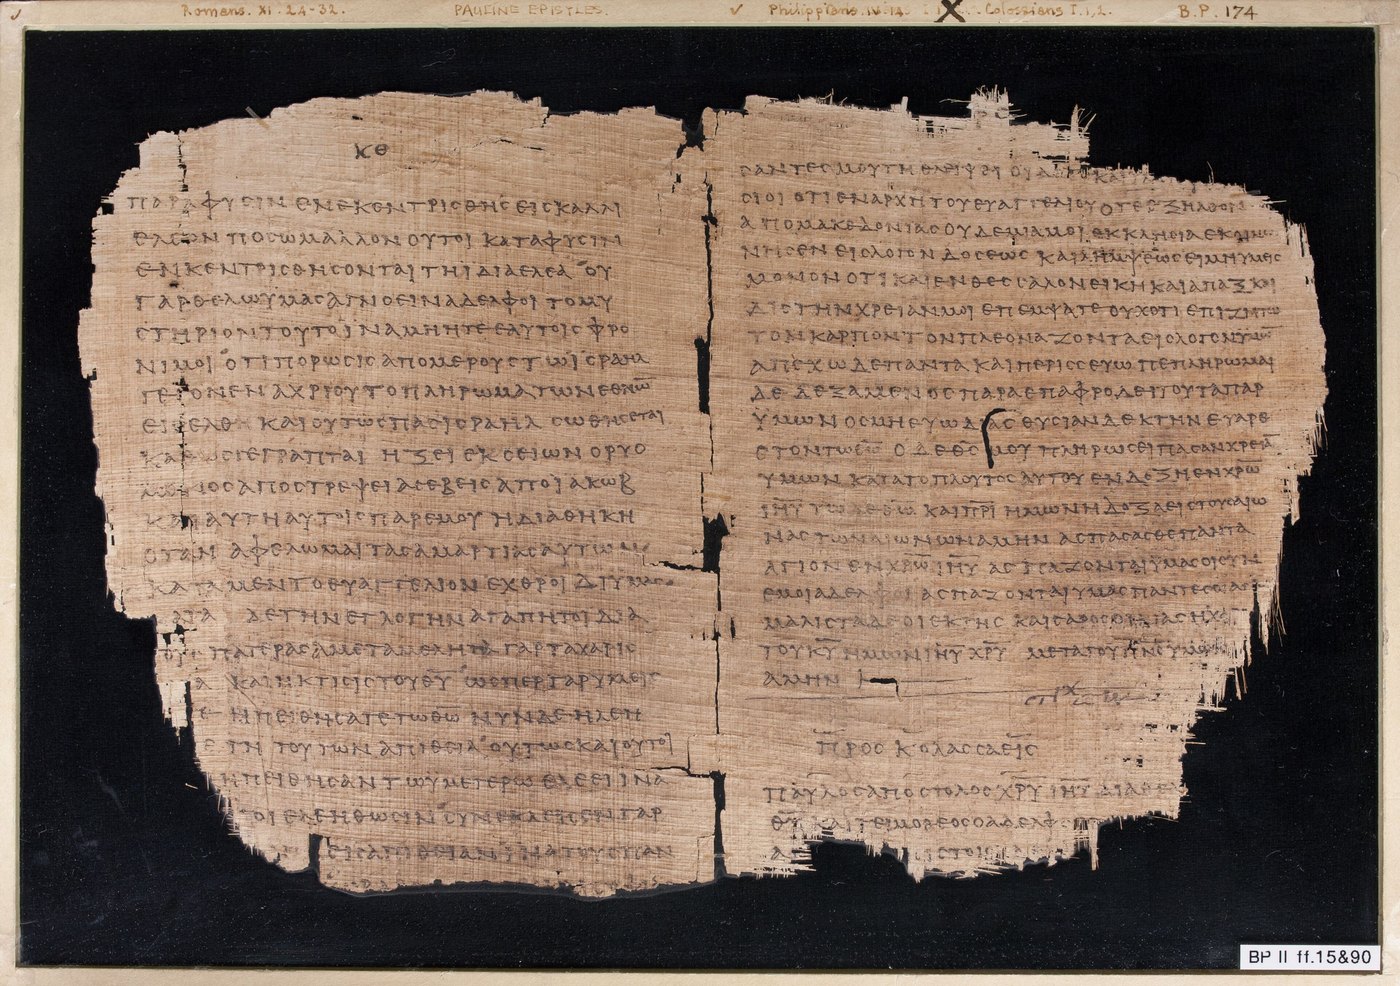 Romans. XI. 24-32.
PAULINE EPISTLES.
Philippians. IV. 14. Colossians I. 1, 2.
B.P. 174
ΚΘ
ΠΑΡΑΦΥΣΙΝ ΕΝΕΚΕΝΤΡΙΣΘΗΣ ΕΙΣ ΚΑΛΛΙ
ΕΛΕΟΝ ΠΟΣΩ ΜΑΛΛΟΝ ΟΥΤΟΙ ΚΑΤΑΦΥΣΙΝ
ΕΝΚΕΝΤΡΙΣΘΗΣΟΝΤΑΙ ΤΗΙΔΙΑ ΕΛΕΑ ΟΥ
ΓΑΡ ΘΕΛΩ ΥΜΑΣ ΑΓΝΟΕΙΝ ΑΔΕΛΦΟΙ ΤΟ ΜΥ
ΣΤΗΡΙΟΝ ΤΟΥΤΟ ΙΝΑ ΜΗ ΗΤΕ ΕΑΥΤΟΙΣ ΦΡΟ
ΝΙΜΟΙ ΟΤΙ ΠΟΡΩΣΙΣ ΑΠΟ ΜΕΡΟΥΣ ΤΩ ΙΣΡΑΗΛ
ΓΕΓΟΝΕΝ ΑΧΡΙ ΟΥ ΤΟ ΠΛΗΡΩΜΑ ΤΩΝ ΕΘΝΩ̅
ΕΙΣΕΛΘΗ ΚΑΙ ΟΥΤΩΣ ΠΑΣ ΙΣΡΑΗΛ ΣΩΘΗΣΕΤΑΙ
ΚΑΘΩΣ ΓΕΓΡΑΠΤΑΙ ΗΞΕΙ ΕΚ ΣΕΙΩΝ Ο ΡΥΟ
ΜΕΝΟΣ ΑΠΟΣΤΡΕΨΕΙ ΑΣΕΒΕΙΣ ΑΠΟ ΙΑΚΩΒ
ΚΑΙ ΑΥΤΗ ΑΥΤΟΙΣ ΠΑΡ ΕΜΟΥ Η ΔΙΑΘΗΚΗ
ΟΤΑΝ ΑΦΕΛΩΜΑΙ ΤΑΣ ΑΜΑΡΤΙΑΣ ΑΥΤΩ
ΚΑΤΑ ΜΕΝ ΤΟ ΕΥΑΓΓΕΛΙΟΝ ΕΧΘΡΟΙ ΔΙ ΥΜΑΣ
ΚΑΤΑ ΔΕ ΤΗΝ ΕΓΛΟΓΗΝ ΑΓΑΠΗΤΟΙ ΔΙΑ
ΤΟΥΣ ΠΑΤΕΡΑΣ ΑΜΕΤΑΜΕΛΗΤΑ ΓΑΡ ΤΑ ΧΑΡΙΣ
ΚΑΙ Η ΚΤΙΣΙΣ ΤΟΥ Θ̅Υ̅ ΩΣΠΕΡ ΓΑΡ ΥΜΕΙΣ
ΗΠΕΙΘΗΣΑΤΕ ΤΩ Θ̅Ω̅ ΝΥΝ ΔΕ ΗΛΕΗ
ΤΗ ΤΟΥΤΩΝ ΑΠΙΘΕΙΑ ΟΥΤΩΣ ΚΑΙ ΟΥΤΟΙ
ΗΠΕΙΘΗΣΑΝ ΤΩ ΥΜΕΤΕΡΩ ΕΛΕΕΙ ΙΝΑ
ΤΟΙ ΕΛΕΗΘΩΣΙΝ ΣΥΝΕΚΛΕΙΣΕΝ ΓΑΡ
ΕΙΣ ΑΠΙΘΕΙΑΝ ΙΝΑ ΤΟΥΣ ΠΑΝ
ΣΑΝΤΕΣ ΜΟΥ ΤΗ ΘΛΕΙΨΕΙ
ΣΙΟΙ ΟΤΙ ΕΝ ΑΡΧΗ ΤΟΥ ΕΥΑΓΓΕΛΙΟΥ ΟΤΕ ΕΞΗΛΘΟΝ
ΑΠΟ ΜΑΚΕΔΟΝΙΑΣ ΟΥΔΕΜΙΑ ΜΟΙ ΕΚΚΛΗΣΙΑ ΕΚΟΙΝΩ
ΝΗΣΕΝ ΕΙΣ ΛΟΓΟΝ ΔΟΣΕΩΣ ΚΑΙ ΛΗΜΨΕΩΣ ΕΙ ΜΗ ΥΜΕΙΣ
ΜΟΝΟΝ ΟΤΙ ΚΑΙ ΕΝ ΘΕΣΣΑΛΟΝΕΙΚΗ ΚΑΙ ΑΠΑΞ ΚΑΙ
ΔΙΣ ΤΗΝ ΧΡΕΙΑΝ ΜΟΙ ΕΠΕΜΨΑΤΕ ΟΥΧ ΟΤΙ ΕΠΙΖΗΤΩ
ΤΟΝ ΚΑΡΠΟΝ ΤΟΝ ΠΛΕΟΝΑΖΟΝΤΑ ΕΙΣ ΛΟΓΟΝ ΥΜΩ̅
ΑΠΕΧΩ ΔΕ ΠΑΝΤΑ ΚΑΙ ΠΕΡΙΣΣΕΥΩ ΠΕΠΛΗΡΩΜΑΙ
ΔΕ ΔΕΞΑΜΕΝΟΣ ΠΑΡΑ ΕΠΑΦΡΟΔΕΙΤΟΥ ΤΑ ΠΑΡ
ΥΜΩΝ ΟΣΜΗ ΕΥΩΔΙΑΣ ΘΥΣΙΑΝ ΔΕΚΤΗΝ ΕΥΑΡΕ
ΣΤΟΝ ΤΩ Θ̅Ω̅ Ο ΔΕ Θ̅Σ̅ ΜΟΥ ΠΛΗΡΩΣΕΙ ΠΑΣΑΝ ΧΡΕΙΑ̅
ΥΜΩΝ ΚΑΤΑ ΤΟ ΠΛΟΥΤΟΣ ΑΥΤΟΥ ΕΝ ΔΟΞΗ ΕΝ Χ̅Ρ̅Ω̅
Ι̅Η̅Υ̅ ΤΩ ΔΕ Θ̅Ω̅ ΚΑΙ Π̅Ρ̅Ι̅ ΗΜΩΝ Η ΔΟΞΑ ΕΙΣ ΤΟΥΣ ΑΙΩ
ΝΑΣ ΤΩΝ ΑΙΩΝΩΝ ΑΜΗΝ ΑΣΠΑΣΑΣΘΕ ΠΑΝΤΑ
ΑΓΙΟΝ ΕΝ Χ̅Ρ̅Ω̅ Ι̅Η̅Υ̅ ΑΣΠΑΖΟΝΤΑΙ ΥΜΑΣ ΟΙ ΣΥΝ
ΕΜΟΙ ΑΔΕΛΦΟΙ ΑΣΠΑΖΟΝΤΑΙ ΥΜΑΣ ΠΑΝΤΕΣ
ΜΑΛΙΣΤΑ ΔΕ ΟΙ ΕΚ ΤΗΣ ΚΑΙΣΑΡΟΣ ΟΙΚΙΑΣ Η ΧΑΡΙΣ
ΤΟΥ Κ̅Υ̅ ΗΜΩΝ Ι̅Η̅Υ̅ Χ̅Ρ̅Υ̅ ΜΕΤΑ ΤΟΥ Π̅Ν̅Σ̅ ΥΜΩΝ
ΑΜΗΝ
ΠΡΟΣ ΚΟΛΑΣΣΑΕΙΣ
ΠΑΥΛΟΣ ΑΠΟΣΤΟΛΟΣ Χ̅Ρ̅Υ̅ Ι̅Η̅Υ̅ ΔΙΑ ΘΕΛ
Θ̅Υ̅ ΚΑΙ ΤΕΙΜΟΘΕΟΣ Ο ΑΔΕΛΦΟΣ
BP II ff.15&90